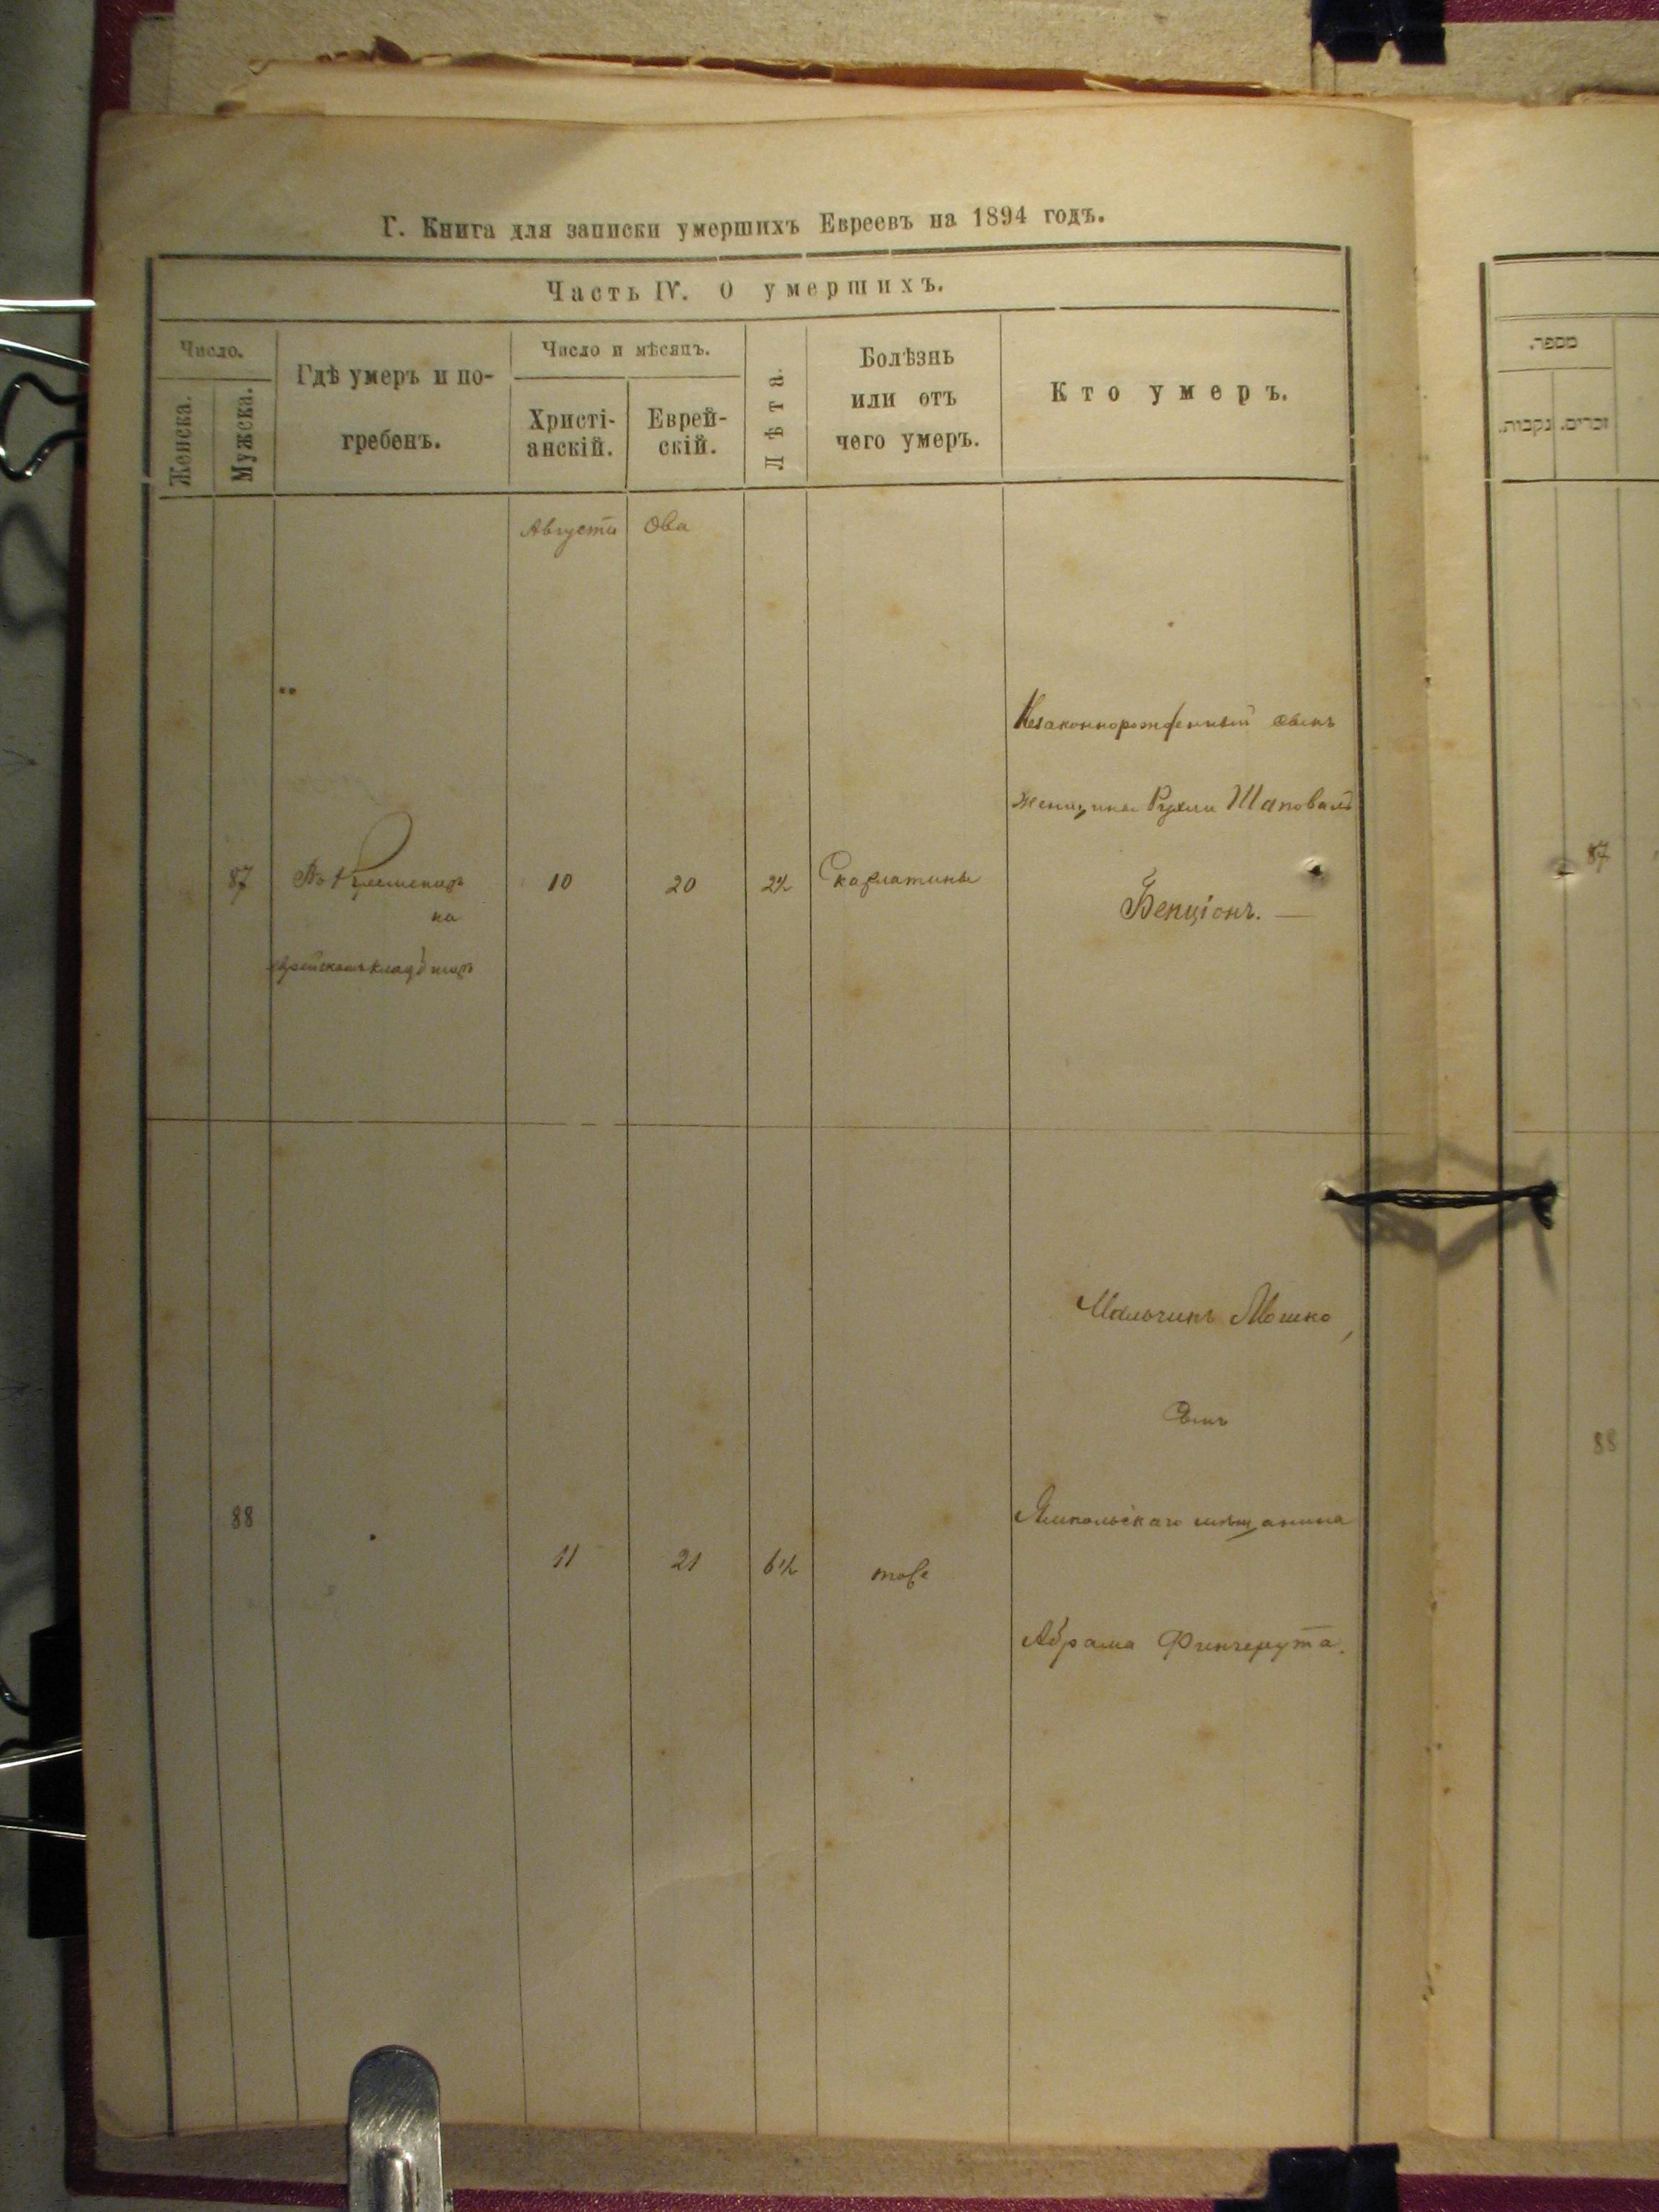 Г. Книга для записки умершихъ Евреевъ на 1894 годъ.
Часть IV. О умершихъ.
Число.
Женска.
Мужска.
Гдѣ умеръ и по-
гребенъ.
Число и мѣсяцъ.
Христі-
анскій.
Еврей-
скій.
Лѣта.
Болѣзнь
или отъ
чего умеръ.
Кто умеръ.
מספר.
נקבות.
זכרים.
Августа
Ова
Незаконнорожденный сынъ
женщины Рухли Шаповалъ
87
Въ Кременцѣ
на
еврейскомъ кладбищѣ
10
20
2½
Скарлатины
Бенціонъ. —
87
Мальчикъ Мошко,
сынъ
88
Ямпольскаго мѣщанина
11
21
6½
тоже
Абрама
88